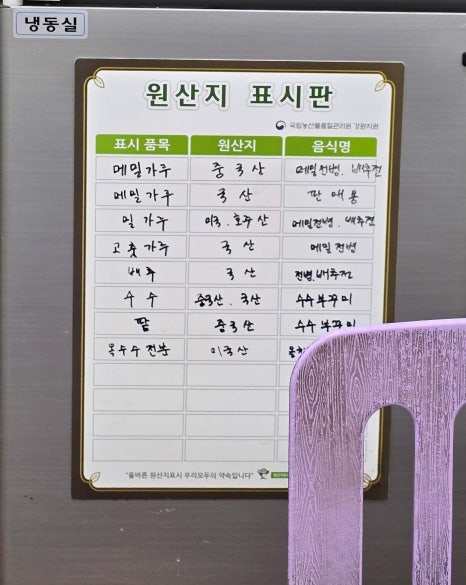 냉동실
원산지 표시판
국립농산물품질관리원 강원지원
표시 품목 원산지 음식명
메밀가루 중국산 메밀전병. 배추전
메밀가루 국산 판매용
밀가루 미국. 호주산 메밀전병. 배추전
고춧가루 국산 메밀전병
배추 국산 전병.배추전
수수 중국산. 국산 수수부꾸미
팥 중국산 수수부꾸미
옥수수전분 미국산
"올바른 원산지표시 우리모두의 약속입니다"